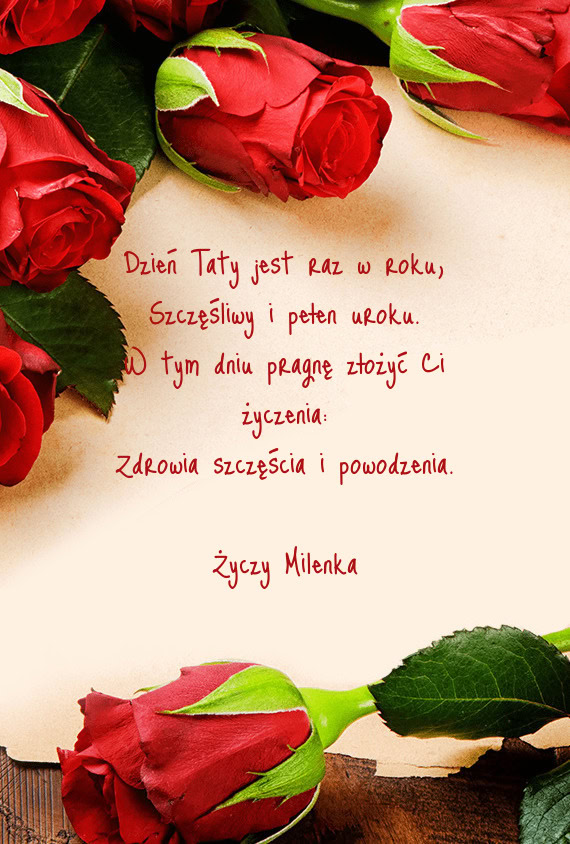 Dzień Taty jest raz w roku,
Szczęśliwy i pełen uroku.
W tym dniu pragnę złożyć Ci
życzenia:
Zdrowia szczęścia i powodzenia.
Życzy Milenka